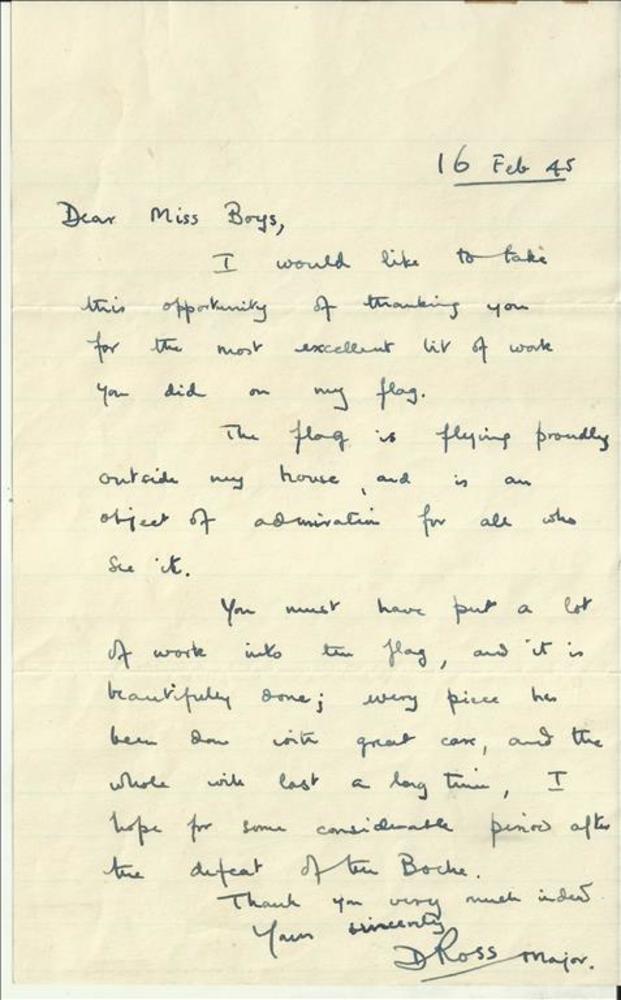 16 Feb 45
Dear Miss Boys,
I would like to take
this opportunity of thanking you
for the most excellent bit of work
you did on my flag.
The flag is flying proudly
outside my house, and is an
object of admiration for all who
see it.
You must have put a lot
of work into the flag, and it is
beautifully done; every piece has
been done with great care, and the
whole will last a long time, I
hope for some considerable period after
the defeat of the Boche.
Thank you very much indeed
Yours sincerely
D Ross Major.